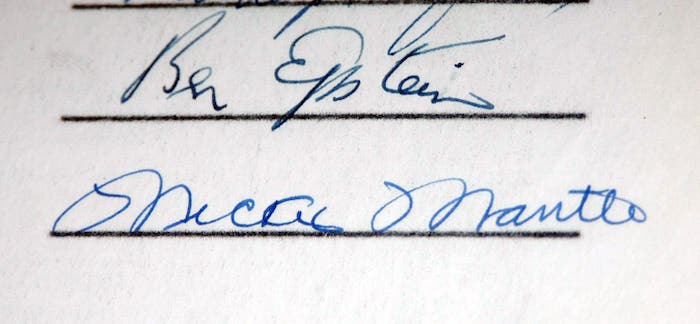 Ben Epstein
Mickey Mantle